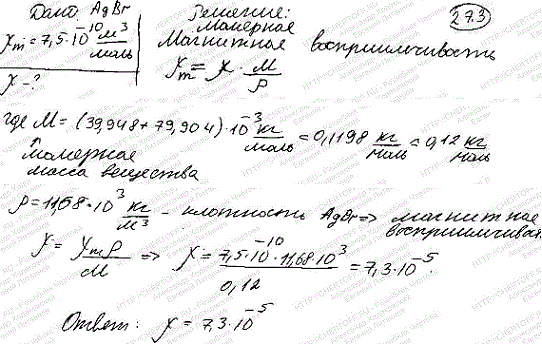 Дано AgBr Решение: 27.3
χm = 7,5·10^-10 м³/моль Молярная
Магнитная восприимчивость
χ - ? χm = χ · M/ρ
где M = (39,948 + 79,904)·10^-3 кг/моль = 0,1198 кг/моль = 0,12 кг/моль
молярная
масса вещества
ρ = 11,68·10^3 кг/м³ - плотность AgBr => магнитное
восприимчиван
χ = χmρ/M => χ = 7,5·10^-10·11,68·10^3/0,12 = 7,3·10^-5.
Ответ: χ = 7,3·10^-5